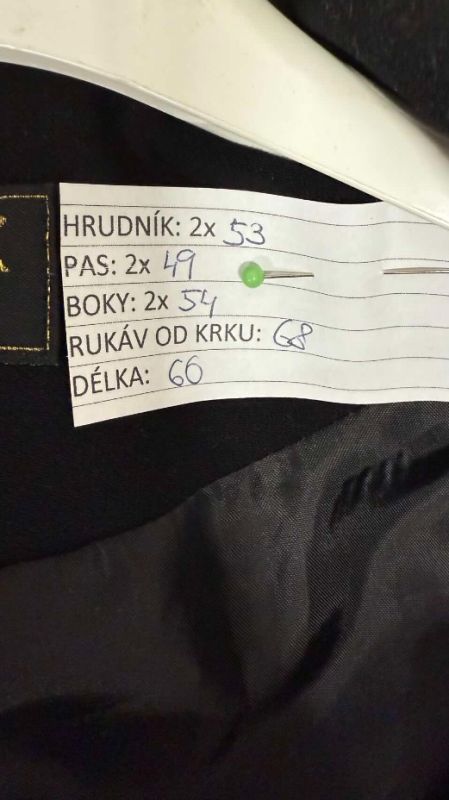 HRUDNÍK: 2x 53
PAS: 2x 49
BOKY: 2x 54
RUKÁV OD KRKU: 68
DÉLKA: 66